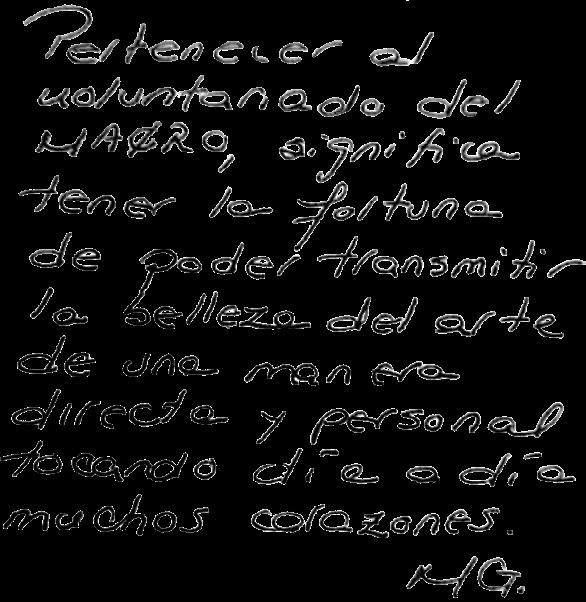 Pertenecer al
voluntariado del
MACRO, significa
tener la fortuna
de poder transmitir
la belleza del arte
de una manera
directa y personal
tocando día a día
muchos corazones.
MG.